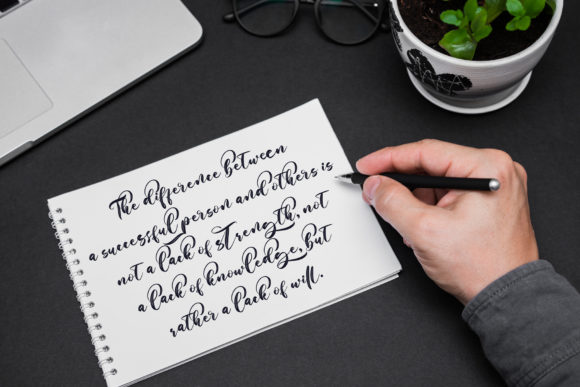 The difference between
a successful person and others is
not a lack of strength, not
a lack of knowledge, but
rather a lack of will.